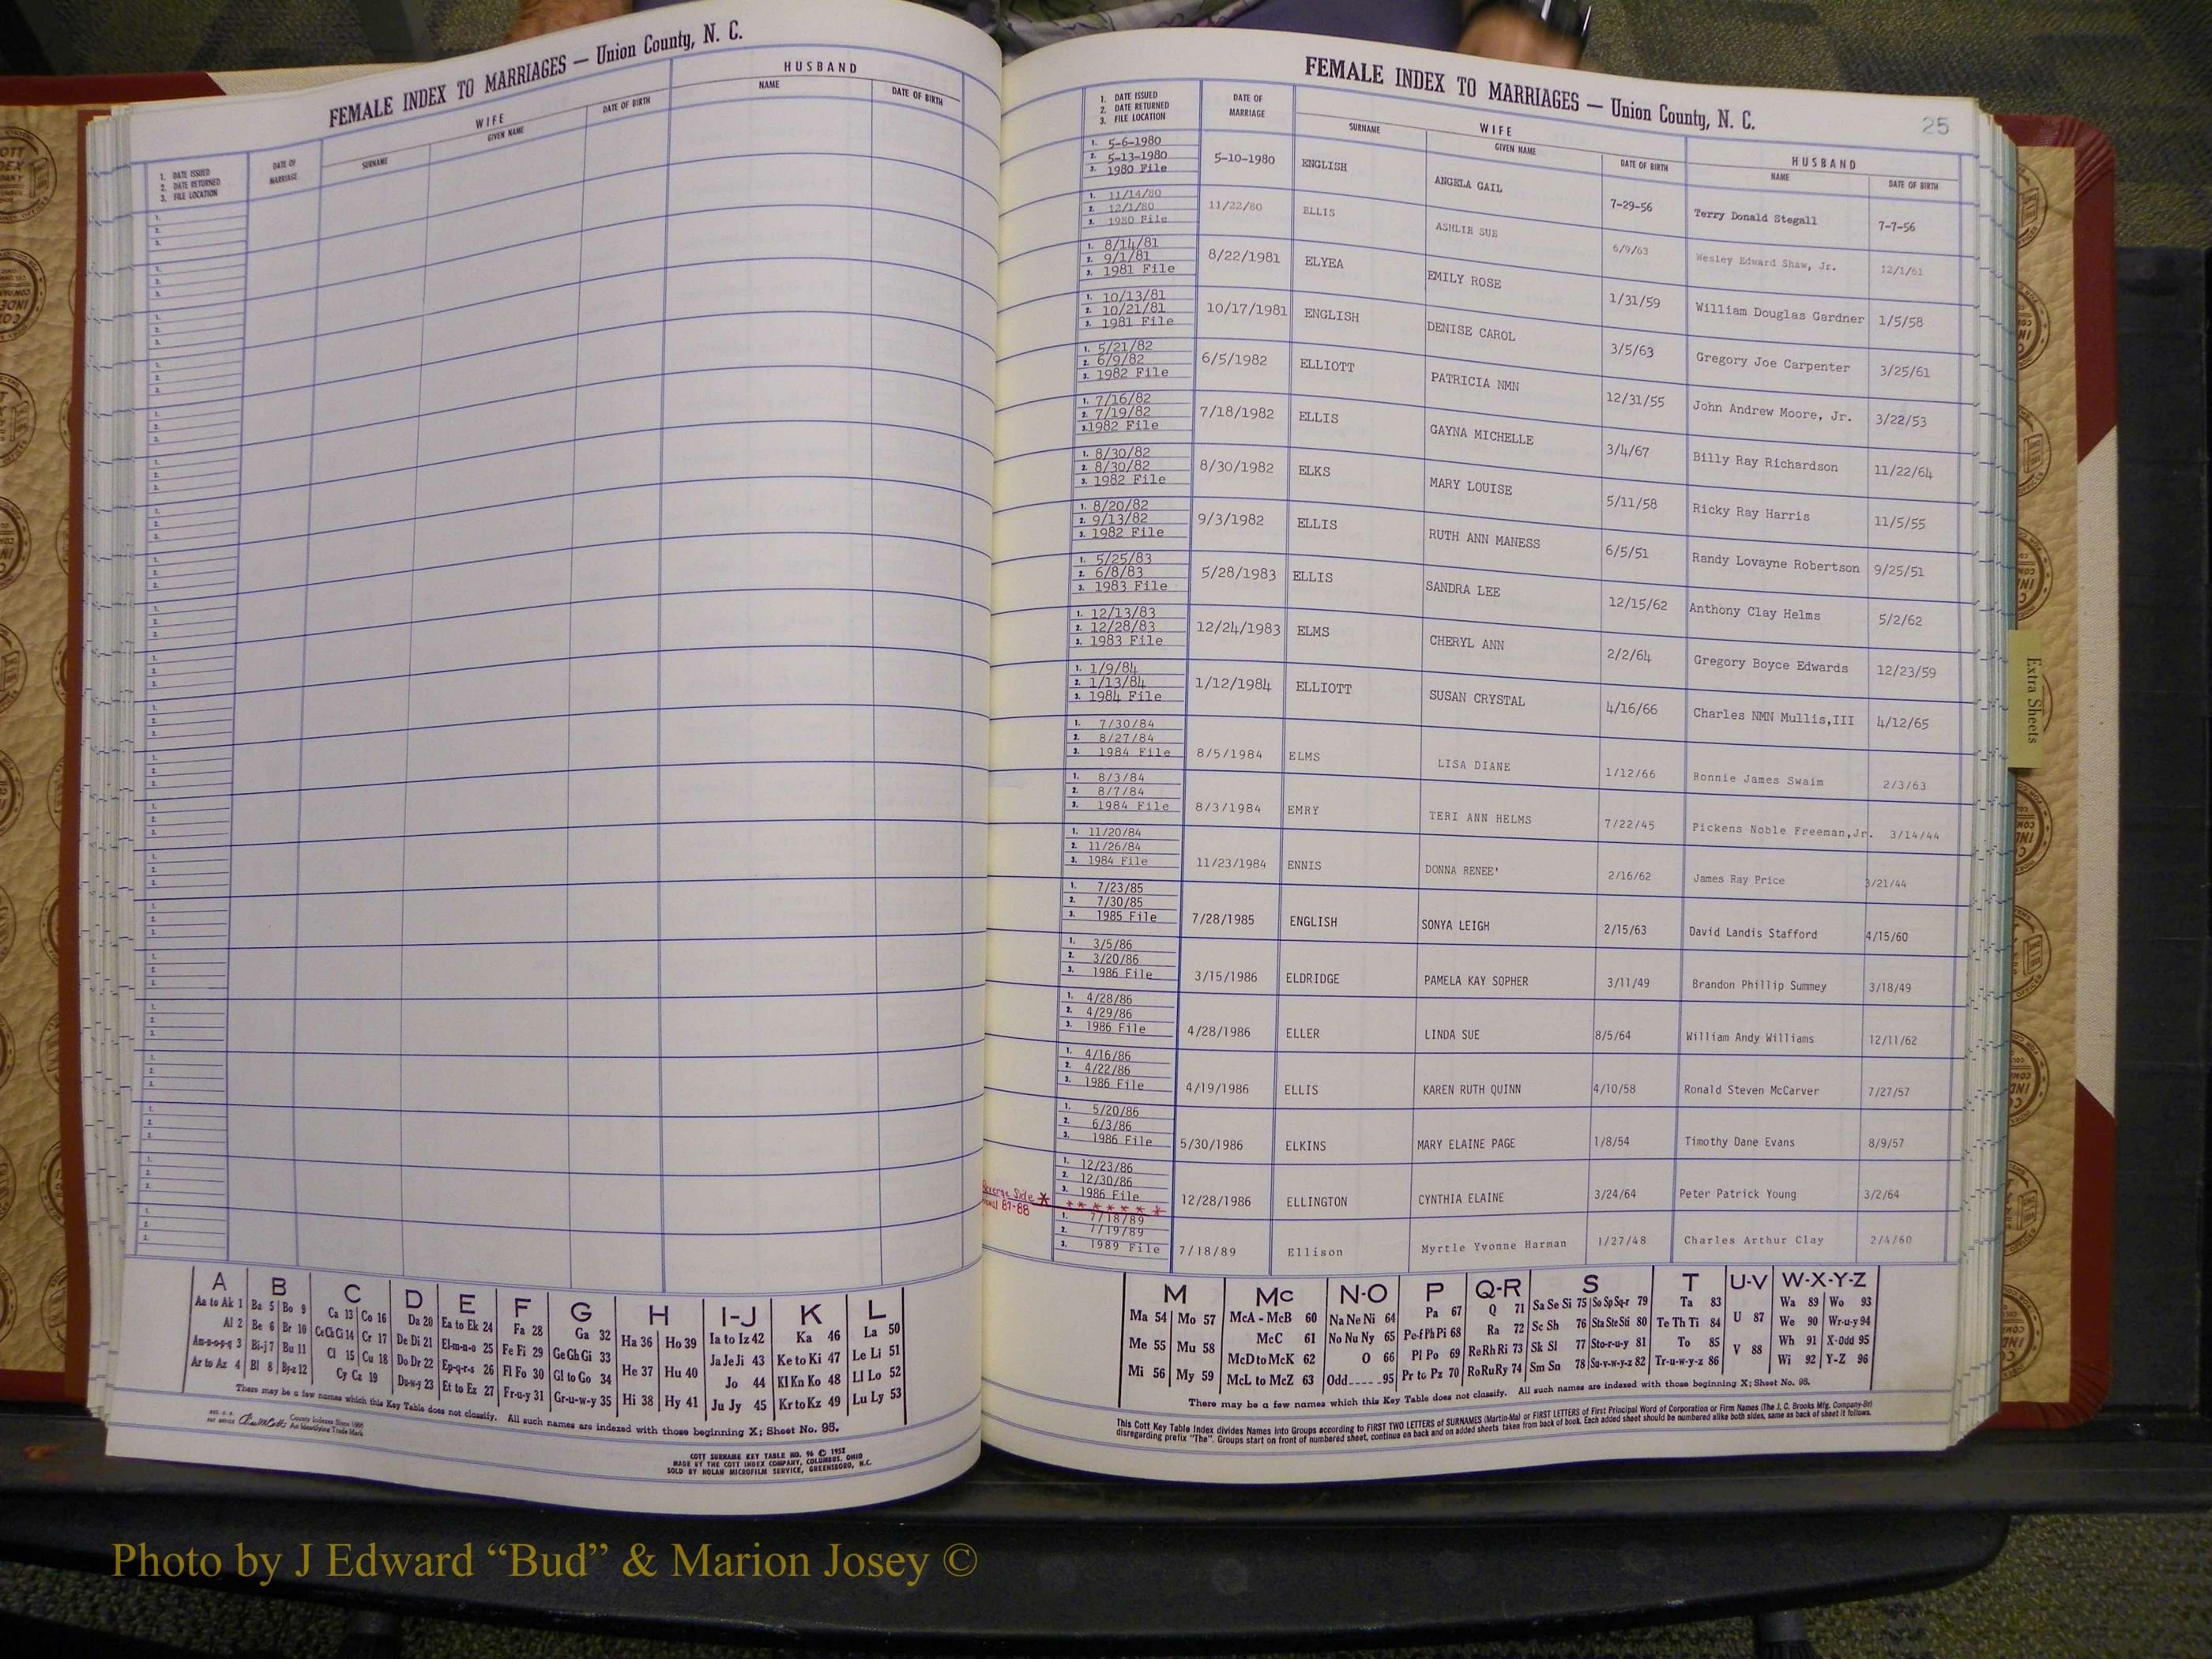 FEMALE INDEX TO MARRIAGES — Union County, N. C.
1. DATE ISSUED
2. DATE RETURNED
3. FILE LOCATION
DATE OF MARRIAGE
WIFE
SURNAME GIVEN NAME DATE OF BIRTH
HUSBAND
NAME DATE OF BIRTH
FEMALE INDEX TO MARRIAGES — Union County, N. C.
25
1. DATE ISSUED
2. DATE RETURNED
3. FILE LOCATION
DATE OF MARRIAGE
WIFE
SURNAME GIVEN NAME DATE OF BIRTH
HUSBAND
NAME DATE OF BIRTH
1. 5-6-1980
2. 5-13-1980
3. 1980 File
5-10-1980 ENGLISH ANGELA GAIL 7-29-56 Terry Donald Stegall 7-7-56
1. 11/14/80
2. 12/1/80
3. 1980 File
11/22/80 ELLIS ASHLIE SUE 6/9/63 Wesley Edward Shaw, Jr. 12/1/61
1. 8/14/81
2. 9/1/81
3. 1981 File
8/22/1981 ELYEA EMILY ROSE 1/31/59 William Douglas Gardner 1/5/58
1. 10/13/81
2. 10/21/81
3. 1981 File
10/17/1981 ENGLISH DENISE CAROL 3/5/63 Gregory Joe Carpenter 3/25/61
1. 5/21/82
2. 6/9/82
3. 1982 File
6/5/1982 ELLIOTT PATRICIA NMN 12/31/55 John Andrew Moore, Jr. 3/22/53
1. 7/16/82
2. 7/19/82
3. 1982 File
7/18/1982 ELLIS GAYNA MICHELLE 3/4/67 Billy Ray Richardson 11/22/64
1. 8/30/82
2. 8/30/82
3. 1982 File
8/30/1982 ELKS MARY LOUISE 5/11/58 Ricky Ray Harris 11/5/55
1. 8/20/82
2. 9/13/82
3. 1982 File
9/3/1982 ELLIS RUTH ANN MANESS 6/5/51 Randy Lovayne Robertson 9/25/51
1. 5/25/83
2. 6/8/83
3. 1983 File
5/28/1983 ELLIS SANDRA LEE 12/15/62 Anthony Clay Helms 5/2/62
1. 12/13/83
2. 12/28/83
3. 1983 File
12/24/1983 ELMS CHERYL ANN 2/2/64 Gregory Boyce Edwards 12/23/59
1. 1/9/84
2. 1/13/84
3. 1984 File
1/12/1984 ELLIOTT SUSAN CRYSTAL 4/16/66 Charles NMN Mullis,III 4/12/65
1. 7/30/84
2. 8/27/84
3. 1984 File
8/5/1984 ELMS LISA DIANE 1/12/66 Ronnie James Swaim 2/3/63
1. 8/3/84
2. 8/7/84
3. 1984 File
8/3/1984 EMRY TERI ANN HELMS 7/22/45 Pickens Noble Freeman,Jr. 3/14/44
1. 11/20/84
2. 11/26/84
3. 1984 File
11/23/1984 ENNIS DONNA RENEE' 2/16/62 James Ray Price 3/21/44
1. 7/23/85
2. 7/30/85
3. 1985 File
7/28/1985 ENGLISH SONYA LEIGH 2/15/63 David Landis Stafford 4/15/60
1. 3/5/86
2. 3/20/86
3. 1986 File
3/15/1986 ELDRIDGE PAMELA KAY SOPHER 3/11/49 Brandon Phillip Summey 3/18/49
1. 4/28/86
2. 4/29/86
3. 1986 File
4/28/1986 ELLER LINDA SUE 8/5/64 William Andy Williams 12/11/62
1. 4/16/86
2. 4/22/86
3. 1986 File
4/19/1986 ELLIS KAREN RUTH QUINN 4/10/58 Ronald Steven McCarver 7/27/57
1. 5/20/86
2. 6/3/86
3. 1986 File
5/30/1986 ELKINS MARY ELAINE PAGE 1/8/54 Timothy Dane Evans 8/9/57
1. 12/23/86
2. 12/30/86
3. 1986 File
12/28/1986 ELLINGTON CYNTHIA ELAINE 3/24/64 Peter Patrick Young 3/2/64
Reverse Side *
87-88
1. 7/18/89
2. 7/19/89
3. 1989 File
7/18/89 Ellison Myrtle Yvonne Harman 1/27/48 Charles Arthur Clay 2/4/60
Extra Sheets
A B C D E F G H I-J K L
Aa to Ak 1 Ba 5 Bo 9 Ca 13 Co 16 Da 20 Ea to Ek 24 Fa 28 Ga 32 Ha 36 Ho 39 Ia to Iz 42 Ka 46 La 50
Al 2 Be 6 Br 10 Ce Ch Ci 14 Cr 17 De Di 21 El-m-n-o 25 Fe Fi 29 Ge Gh Gi 33 He 37 Hu 40 Ja Je Ji 43 Ke to Ki 47 Le Li 51
Am-n-o-p-q 3 Bi-j 7 Bu 11 Cl 15 Cu 18 Do Dr 22 Ep-q-r-s 26 Fl Fo 30 Gl to Go 34 Hi 38 Hy 41 Jo 44 Kl Kn Ko 48 Ll Lo 52
Ar to Az 4 Bl 8 By-z 12 Cy Cz 19 Du-w-y 23 Et to Ez 27 Fr-u-y 31 Gr-u-w-y 35 Ju Jy 45 Kr to Kz 49 Lu Ly 53
There may be a few names which this Key Table does not classify. All such names are indexed with those beginning X; Sheet No. 95.
County Indexes Since 1888
An Identifying Trade Mark
COTT SURNAME KEY TABLE NO. 96 © 1952
MADE BY THE COTT INDEX COMPANY, COLUMBUS, OHIO
SOLD BY NOLAN MICROFILM SERVICE, GREENSBORO, N.C.
M Mc N-O P Q-R S T U-V W-X-Y-Z
Ma 54 Mo 57 McA - McB 60 Na Ne Ni 64 Pa 67 Q 71 Sa Se Si 75 So Sp Sq-r 79 Ta 83 U 87 Wa 89 Wo 93
Me 55 Mu 58 McC 61 No Nu Ny 65 Pe-f Ph Pi 68 Ra 72 Sc Sh 76 Sta Ste Sti 80 Te Th Ti 84 V 88 We 90 Wr-u-y 94
Mi 56 My 59 McD to McK 62 O 66 Pl Po 69 Re Rh Ri 73 Sk Sl 77 Sto-r-u-y 81 To 85 Wh 91 X-Odd 95
McL to McZ 63 Odd 95 Pr to Pz 70 Ro Ru Ry 74 Sm Sn 78 Su-v-w-y-z 82 Tr-u-w-y-z 86 Wi 92 Y-Z 96
There may be a few names which this Key Table does not classify. All such names are indexed with those beginning X; Sheet No. 95.
This Cott Key Table Index divides Names into Groups according to FIRST TWO LETTERS of SURNAMES (Martin-Ma) or FIRST LETTERS of First Principal Word of Corporation or Firm Names (The J. C. Brooks Mfg. Company-Br)
disregarding prefix "The". Groups start on front of numbered sheet, continue on back and on added sheets taken from back of book. Each added sheet should be numbered alike both sides, same as back of sheet it follows.
Photo by J Edward “Bud” & Marion Josey ©